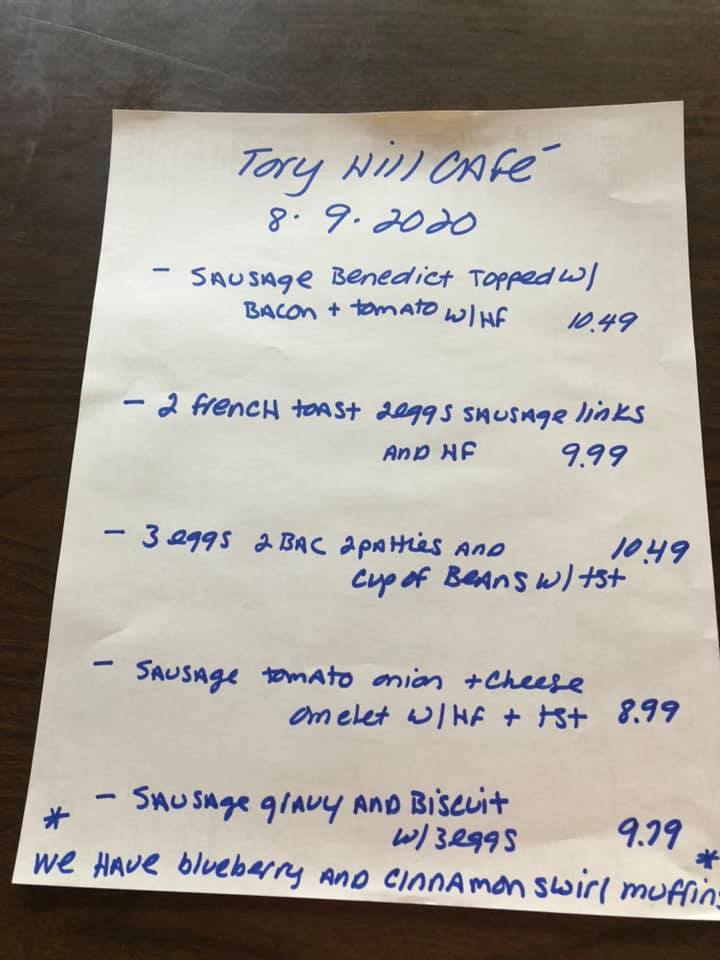 Tory Hill CAfé
8. 9. 2020
- SAUSAge Benedict Topped w/
BACon + tomATo w/HF 10.49
- 2 frencH toAst 2eggs sAusAge links
AnD HF 9.99
- 3 eggs 2 BAC 2pAtties AnD 10.49
Cup of BeAns w/ tst
- SAUSAge tomATo onion + Cheese
omelet w/HF + tst 8.99
- SAUSAge gravy AnD Biscuit
* w/ 3eggs 9.79 *
We HAve blueberry AnD CinnAmon swirl muffins